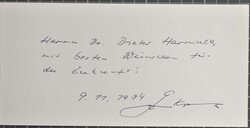 Herrn Dr. Dieter Harmuth,
mit besten Wünschen für
die Zukunft!
9. 11. 1994